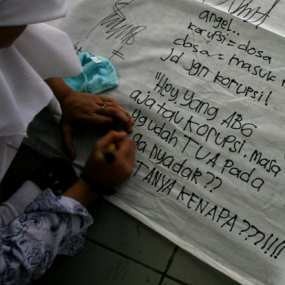 angel..
korupsi = dosa
dosa = masuk n
jd jgn korupsi!
"Hey, yang ABG
aja tau Korupsi. Masa
yg udah TUA pada
ga nyadar??
TANYA KENAPA???!!!!